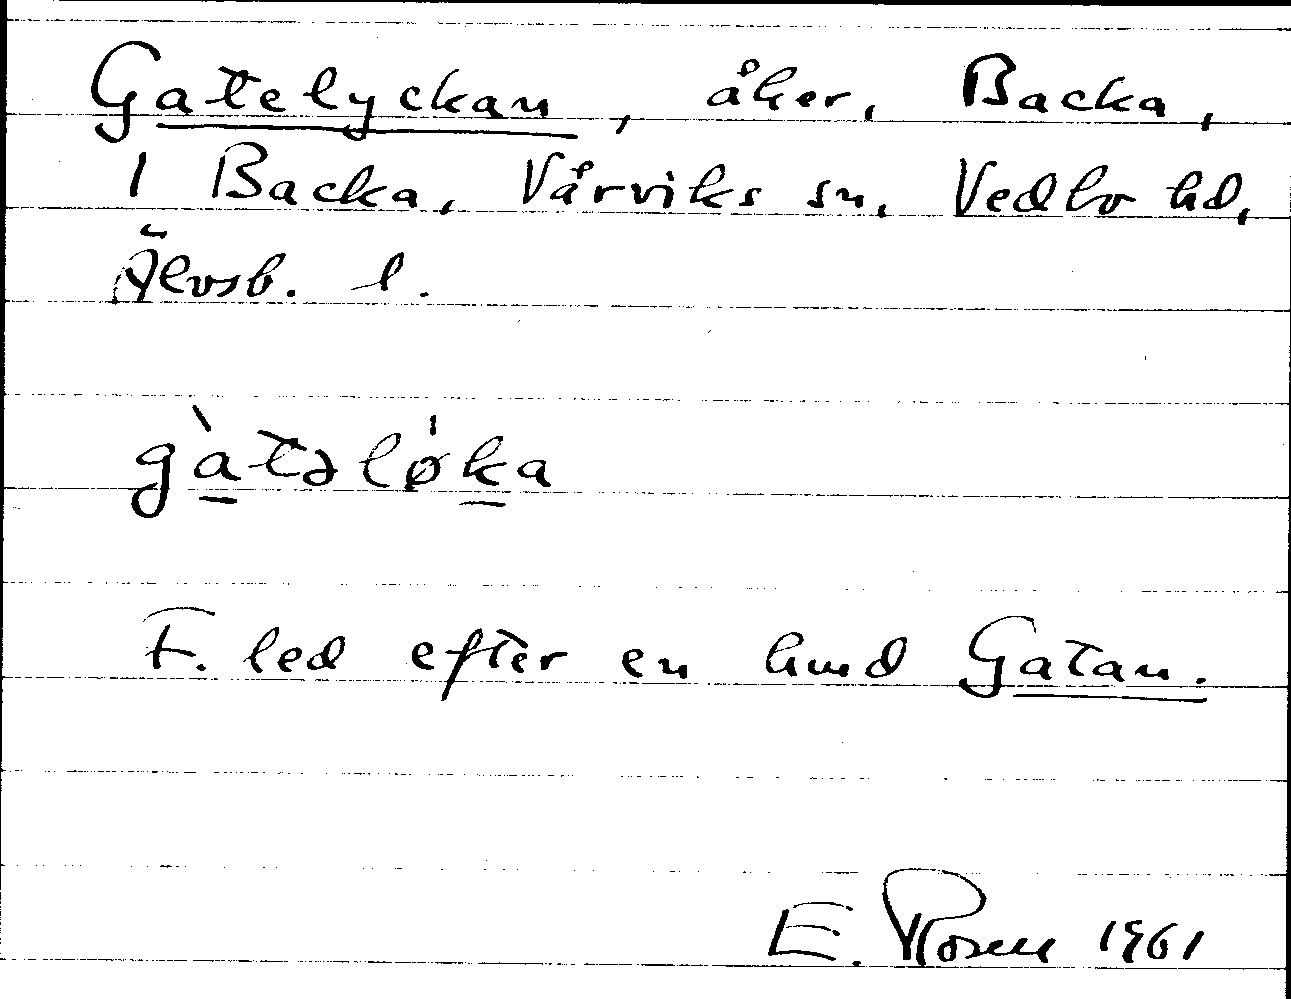 Gatelyckan, åker, Backa,
1 Backa, Vårviks sn, Vedbo hd,
Älvsb. l.
gàtəlø'ka
F. led efter en hund Gatan.
E. Rosen 1961